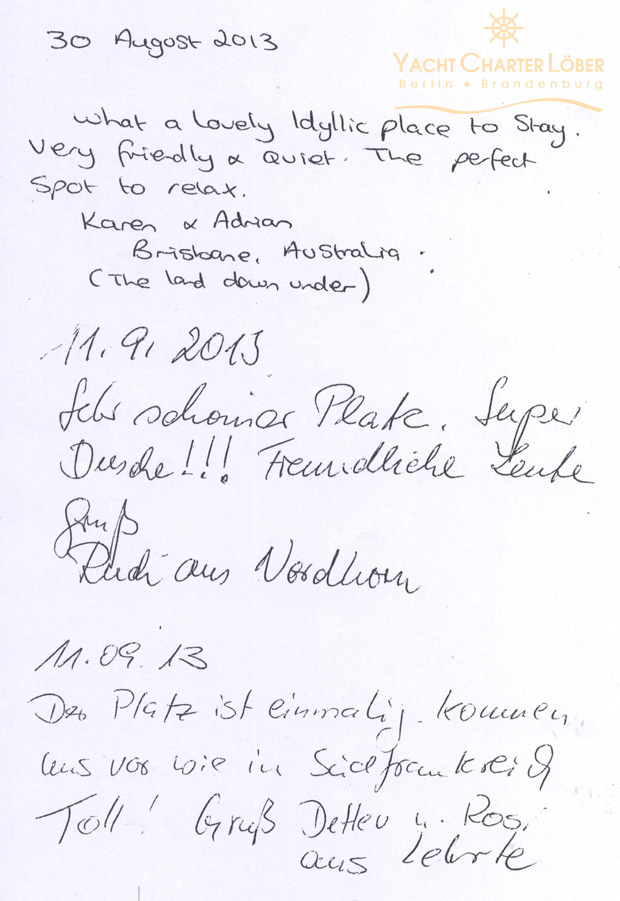 30 August 2013
YACHT CHARTER LÖBER
Berlin • Brandenburg
what a lovely Idyllic place to stay.
Very friendly & Quiet. The perfect
Spot to relax.
Karen & Adrian
Brisbane, Australia.
(The land down under)
11.9. 2013
Sehr schöner Platz. Super
Dusche!!! Freundliche Leute
Gruß
Rudi aus Nordhorn
11.09.13
Der Platz ist einmalig. kommen
uns vor wie in Südfrankreich
Toll! Gruß Detlev u. Rosi
aus Lehrte